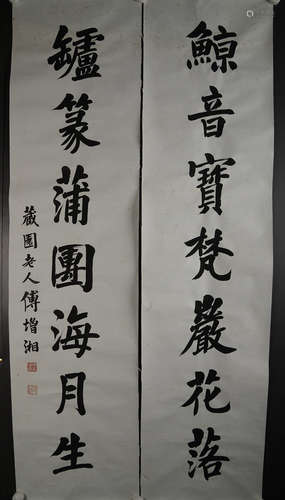 鯨音寶梵巖花落
鑪篆蒲團海月生
藏園老人傅增湘